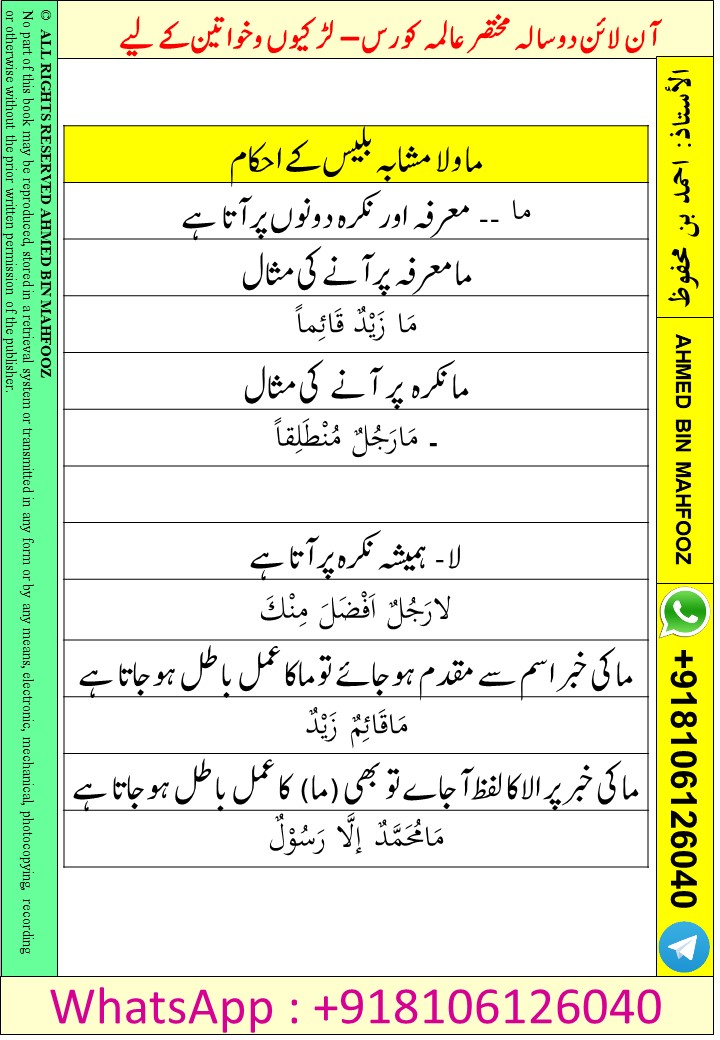 آن لائن دو سالہ مختصر عالمہ کورس – لڑکیوں و خواتین کے لیے
ما ولا مشابہ بلیس کے احکام
ما -- معرفہ اور نکرہ دونوں پر آتا ہے
ما معرفہ پر آنے کی مثال
مَا زَيْدٌ قَائِماً
ما نکرہ پر آنے کی مثال
۔ مَارَجُلٌ مُنْطَلِقاً
لا- ہمیشہ نکرہ پر آتا ہے
لارَجُلٌ اَفْضَلَ مِنْكَ
ما کی خبر اسم سے مقدم ہو جائے تو ما کا عمل باطل ہو جاتا ہے
مَاقَائِمٌ زَيْدٌ
ما کی خبر پر الا کا لفظ آ جاے تو بھی (ما) کا عمل باطل ہو جاتا ہے
مَامُحَمَّدٌ إِلَّا رَسُوْلٌ
الأستاذ: احمد بن محفوظ
AHMED BIN MAHFOOZ
+918106126040
© ALL RIGHTS RESERVED AHMED BIN MAHFOOZ
No part of this book may be reproduced, stored in a retrieval system or transmitted in any form or by any means, electronic, mechanical, photocopying, recording
or otherwise without the prior written permission of the publisher.
WhatsApp : +918106126040